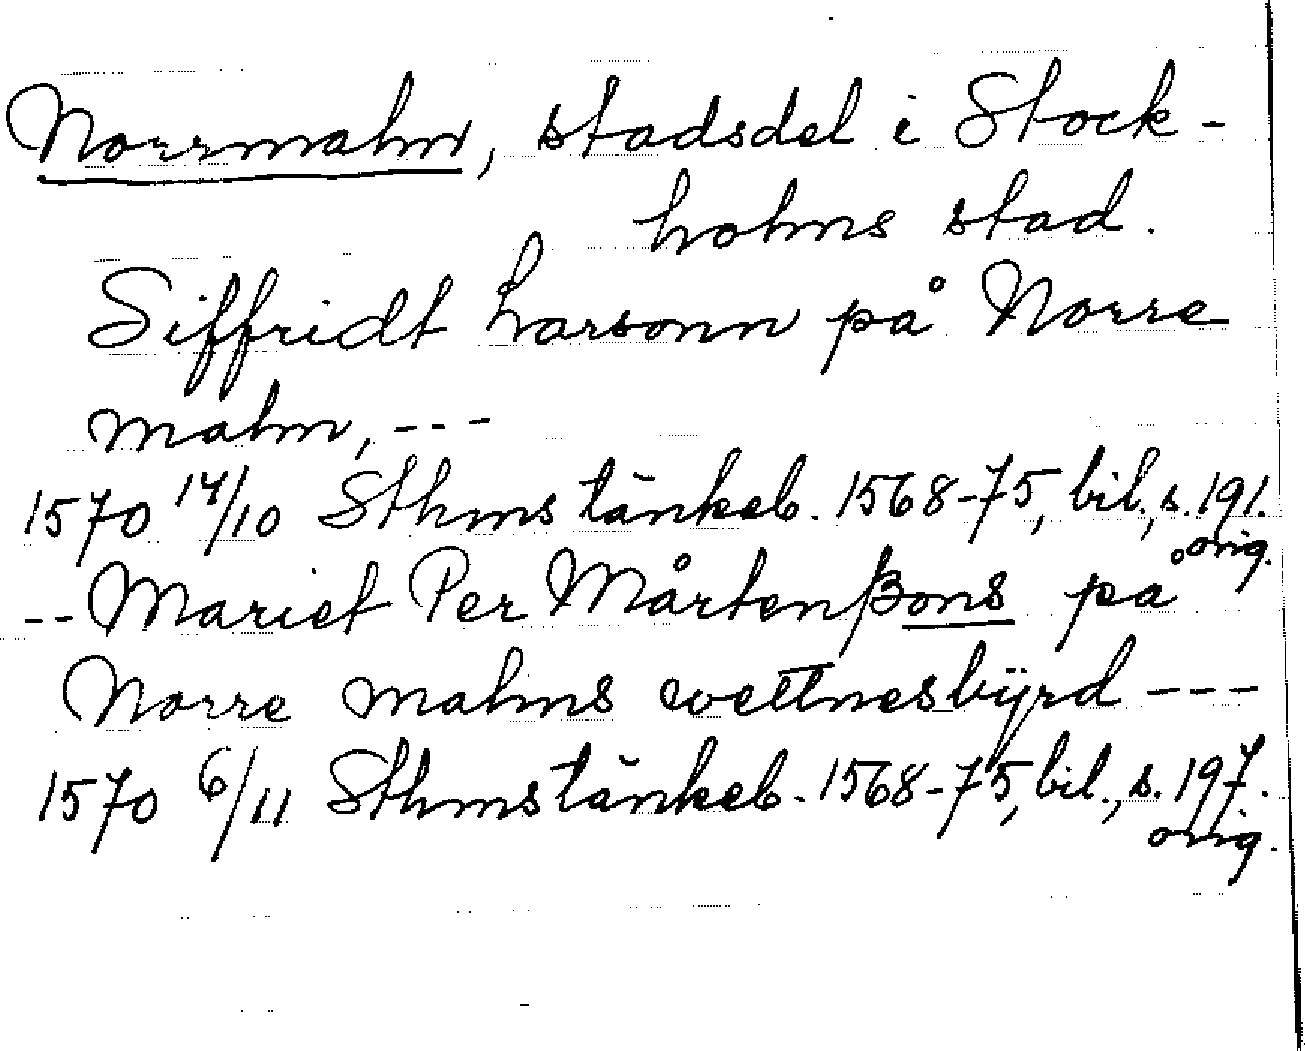 Norrmalm, stadsdel i Stock-
holms stad.
Siffridt Larsonn på Norre
malm, ---
1570 14/10 Sthms tänkeb. 1568-75, bil., s. 191.
orig.
-- Mariet Per Mårtenßons på
Norre malms wettnesbÿrd ---
1570 6/11 Sthms tänkeb. 1568-75, bil., s. 197.
orig.